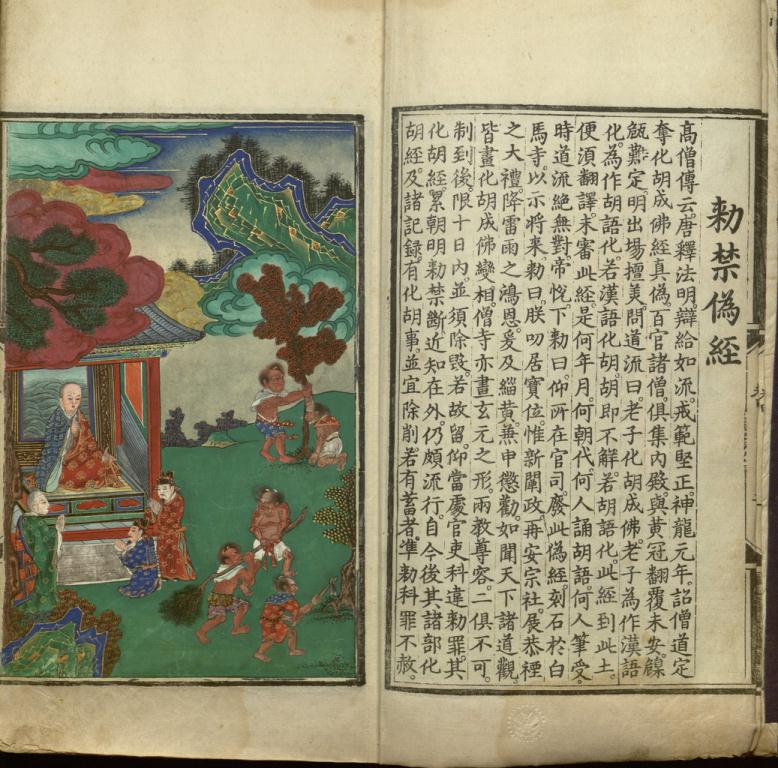 勅禁偽經
高僧傳云唐釋法明辯給如流。戒範堅正。神龍元年。詔僧道定
奪化胡成佛經真偽。百官諸僧。俱集內殿。與黃冠翻覆未安。
難定。明出場擅美。問道流曰。老子化胡成佛。老子為作漢語
化。為作胡語化。若漢語化胡。胡即不解。若胡語化。此經到此土。
便須翻譯。未審此經是何年月。何朝代。何人誦胡語。何人筆受。
時道流絕無對。帝悅。下勅曰。仰所在官司。廢此偽經。刻石於白
馬寺以示將來。勅曰。朕叨居寶位。惟新闡政。再安宗社。展恭禋
之大禮。降雷雨之鴻恩。爰及緇黃。兼申懲勸。如聞天下諸道觀。
皆畫化胡成佛變相。僧寺亦畫玄元之形。兩教尊容。二俱不可。
制到後。限十日內。並須除毀。若故留。仰當處官吏科違勅罪。其
化胡經。累朝明勅禁斷。近知在外。仍頗流行。自今後。其諸部化
胡經。及諸記錄。有化胡事。並宜除削。若有蓄者。準勅科罪不赦。